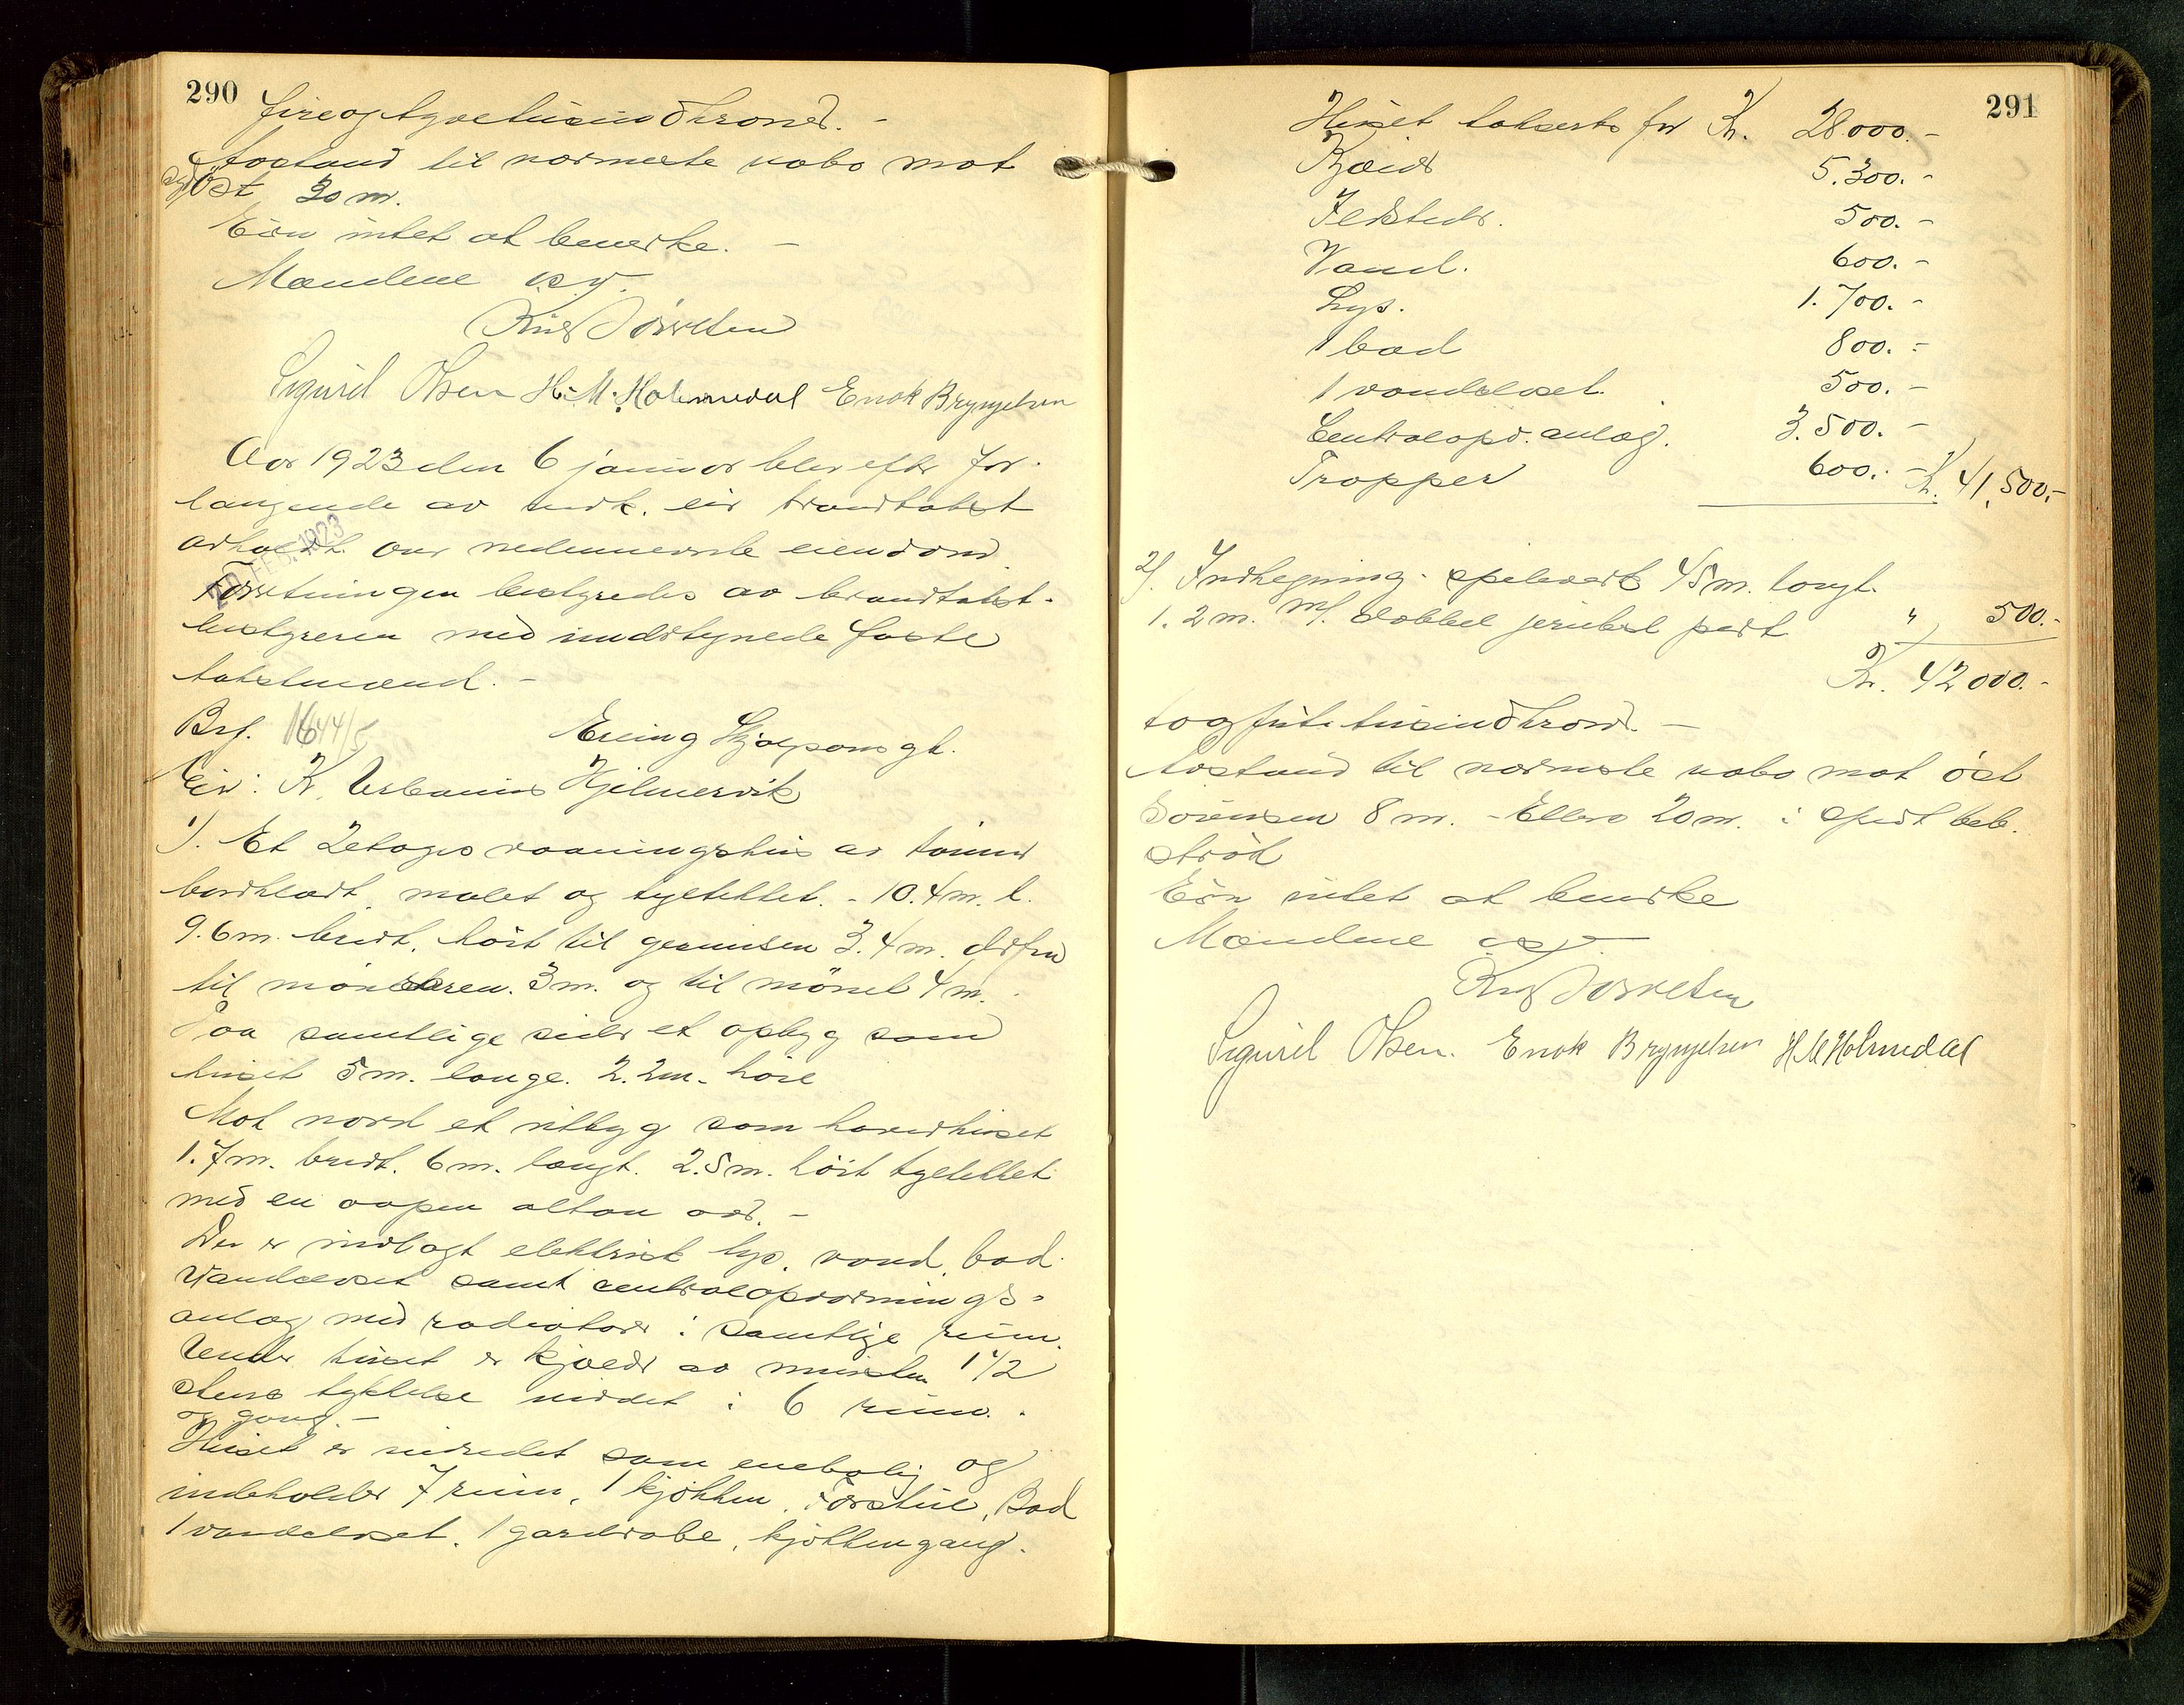 290
fireogtyvetusindkroner. -
Avstand til nærmeste nabo mot
syd
Øst 30 m.
Eier intet at bemerke. -
Mændene op.
Sigurd Olsen H. M. Holmedal Enok Brynjelsen
Aar 1923 den 6 januar blev efter for-
langende av nedn. eier brandtakst
avholdt over nedennevnte eiendom.
20 FEB. 1923
Forretningen bestyredes av brandtakst-
bestyreren med undertegnede faste
takstmænd. -
Brf. 1644/5 Erling Skjalgsons gt.
Eier: K. Urbanus Hjelmervik
1). Et 2etages vaaningshus av tømmer
bordklædt, malet og tegltekket. - 10.4 m. l.
9.6 m. bredt, høit til gesimsen 3.4 m. derfra
til mønekren. 3 m. og til mønet 4 m.
Paa samtlige sider et opbyg som
huset 5 m. lange. 2.2 m. høie
Mot nord et utbyg som hovedhuset
1.7 m. bredt. 6 m. langt. 2.5 m. høit tegltekket
med en aapen altan over. -
Der er indlagt elektrisk lys, vand, bad
vandcloset samt centralopvarmnings-
anlæg med radiatorer i samtlige rum.
Under huset er kjælder av mursten 1 1/2
stens tykkelse inddelt i 6 rum.
og gang. -
Huset er indredet som enebolig og
indeholder 7 rum, 1 kjøkken, Forstue, Bad
1 vandcloset, 1 garderobe, kjøkkengang.
291
Huset takserts for Kr. 28000.-
Kjælder 5.300.-
Ildsteder. 500.-
Vand. 600.-
Lys. 1.700.-
1 bad 800.-
1 vandcloset. 500.-
Centralopv. anlæg. 3.500.-
Trapper 600.- Kr. 41,500.-
2). Indhegning. spilevark 45 m. langt.
1.2 m. m/. dobbel jernbesl port " 500.-
Kr. 42000.-
toogførtitusindkroner. -
Avstand til nærmeste nabo mot øst
Sørensen 8 m. - Ellers 20 m. i spredt beb.
strøk
Eier intet at bemerke
Mændene op.
Sigurd Olsen. Enok Brynjelsen H M Holmedal